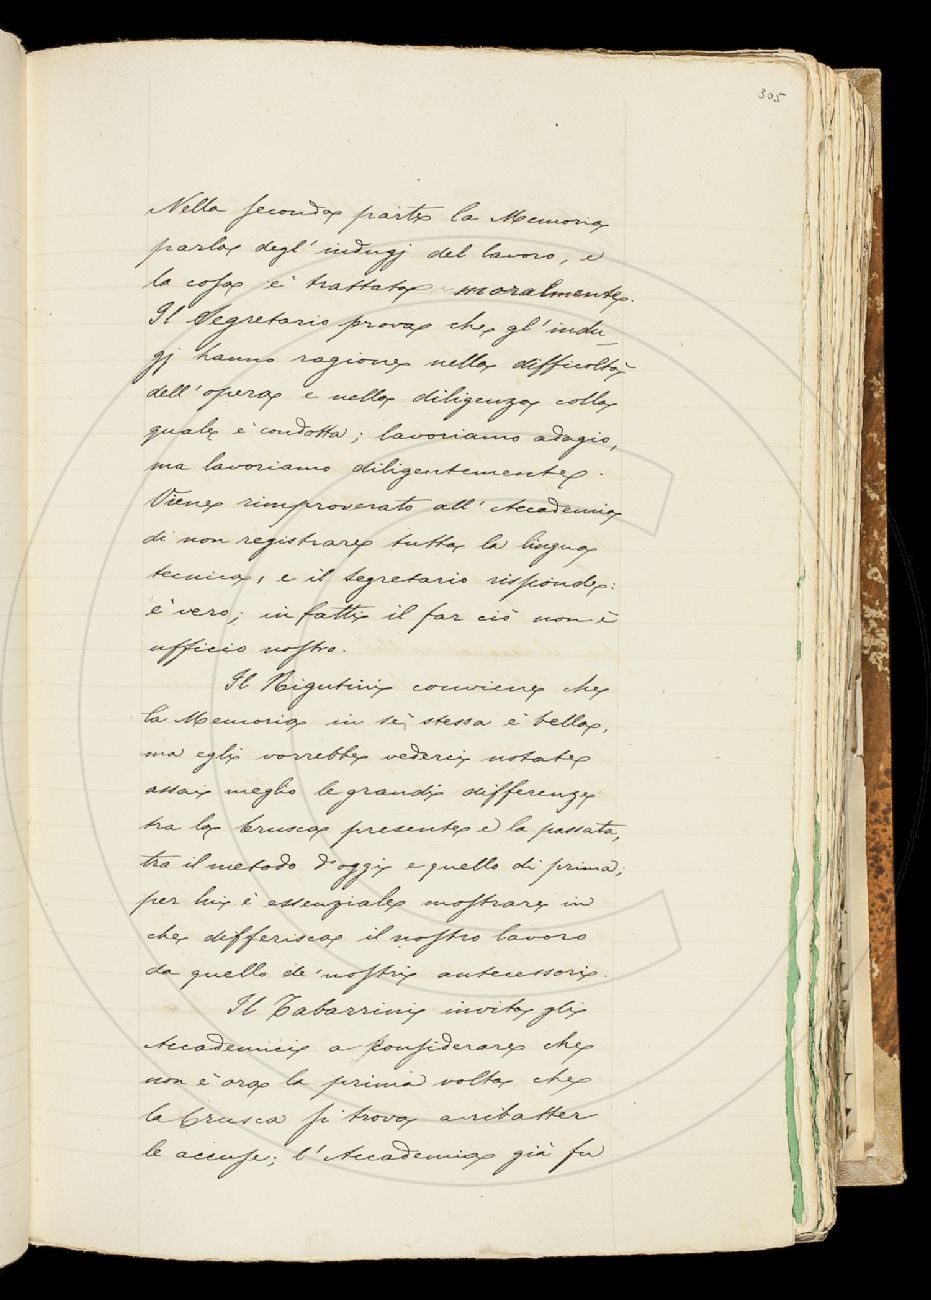 305
Nella seconda parte la Memoria
parla degl'indugj del lavoro, e
la cosa è trattata moralmente.
Il Segretario prova che gl'indu-
gj hanno ragione nella difficoltà
dell'opera e nella diligenza colla
quale è condotta; lavoriamo adagio,
ma lavoriamo diligentemente.
Viene rimproverato all'Accademia
di non registrare tutta la lingua
tecnica, e il Segretario risponde:
è vero; in fatti il far ciò non è
ufficio nostro.
Il Rigutini conviene che
la Memoria in sè stessa è bella,
ma egli vorrebbe vederci notate
assai meglio le grandi differenze
tra la Crusca presente e la passata,
tra il metodo d'oggi e quello di prima;
per lui è essenziale mostrare in
che differisca il nostro lavoro
da quello de' nostri antecessori.
Il Tabarrini invita gli
Accademici a considerare che
non è ora la prima volta che
la Crusca si trova a ribatter
le accuse; l'Accademia già fu